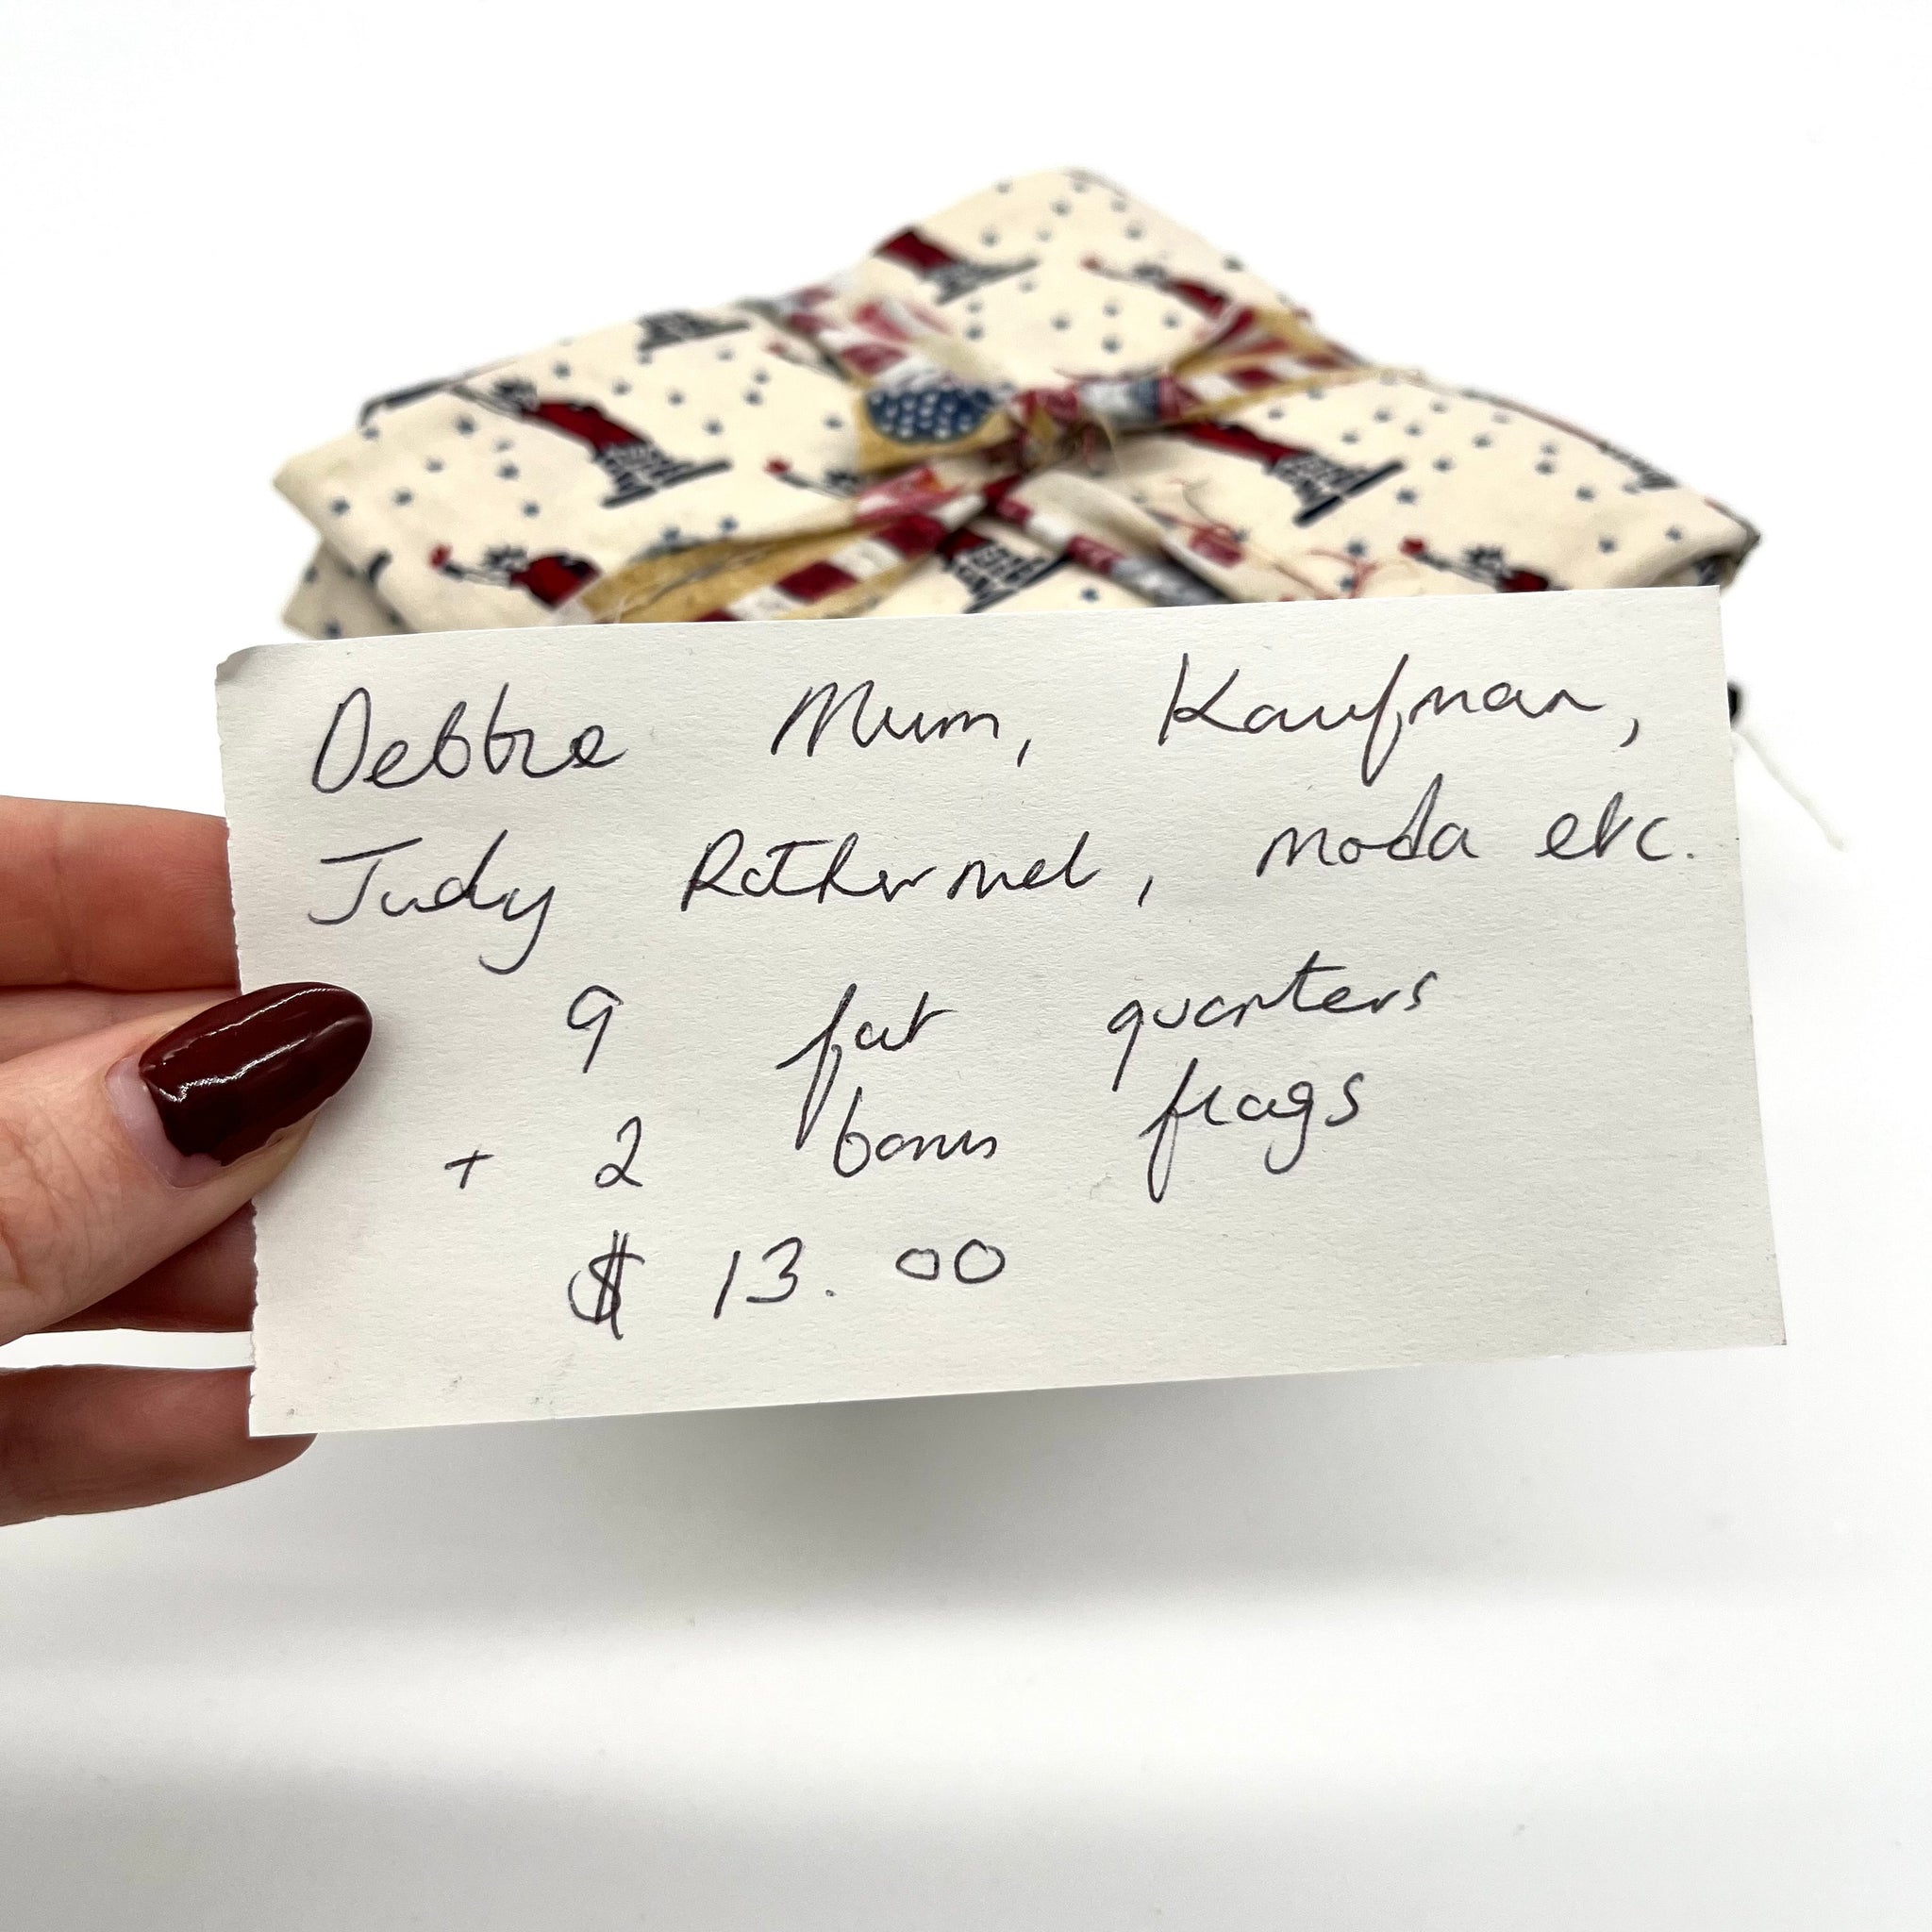 Debbie Mum, Kaufman,
Judy Rothermel, moda etc.
9 fat quarters
+ 2 bonus flags
$ 13.00